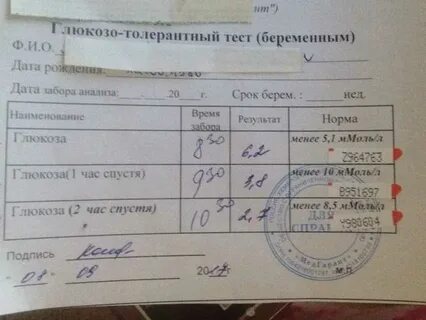 нт")
Глюкозо-толерантный тест (беременным)
Ф.И.О.
Дата рождения:
Дата забора анализа: 20 г. Срок берем. : нед.
Наименование Время забора Результат Норма
Глюкоза 8 30 6,2 менее 5,1 мМоль/л
2964763
Глюкоза(1 час спустя) 9 30 3,8 менее 10 мМоль/л
8951697
Глюкоза (2 час спустя) 10 30 2,7 менее 8,5 мМоль/л
4980604
ДЛЯ
СПРА
"МедГарант"
Подпись
08 09 2017г м.п